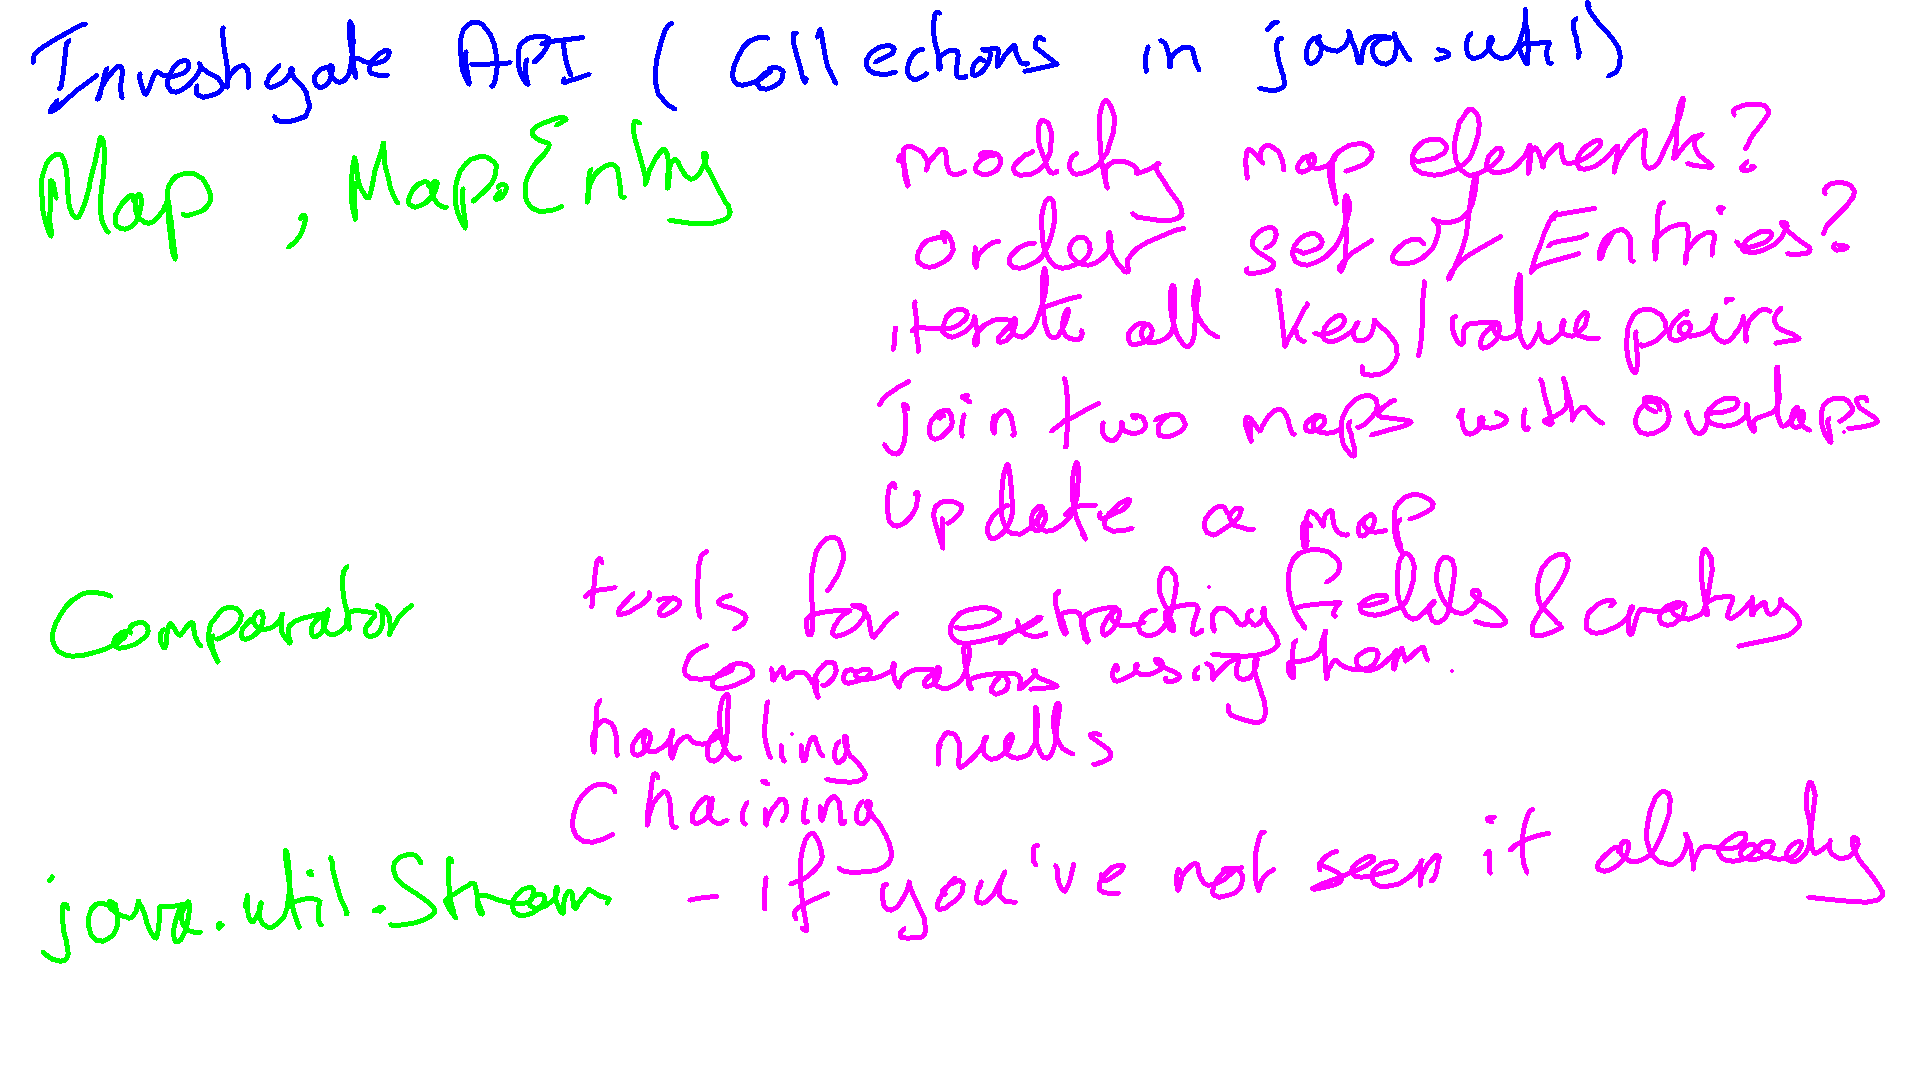 Investigate API (Collections in java.util)
Map , Map.Entry
modify map elements?
order set of Entries?
iterate all key/value pairs
join two maps with overlaps
update a map
Comparator
tools for extracting fields & crating
comparators using them.
handling nulls
Chaining
java.util.Stream - if you've not seen it already